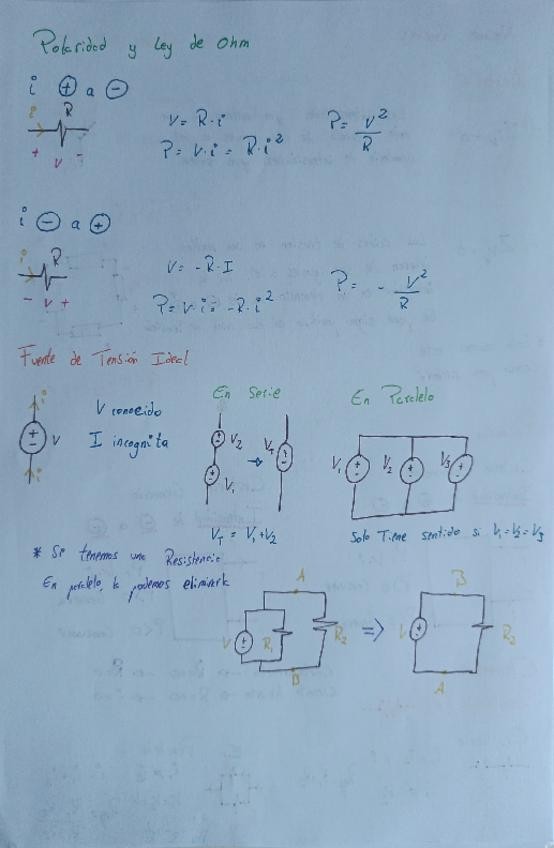 Polaridad y Ley de Ohm
i ⊕ a ⊖
i R
+ v -
V = R·i
P = V·i = R·i²
P = V²/R
i ⊖ a ⊕
i R
- v +
V = -R·I
P = V·i = -R·i²
P = - V²/R
Fuente de Tensión Ideal
i
V
i
V conocido
I incognita
En Serie
V2
V1
VT
VT = V1+V2
En Paralelo
V1 V2 V3
Solo Tiene sentido si V1=V2=V3
* Si tenemos una Resistencia
En paralelo, la podemos eliminarla
A
V R1 R2
B
=>
B
V R2
A